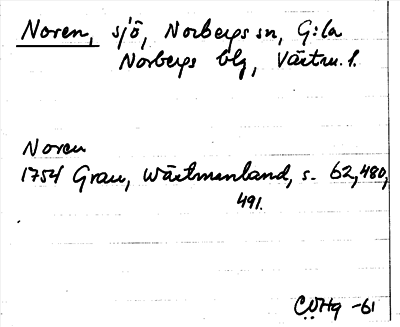 Noren, sjö, Norbergs sn, G:la
Norbergs blg, Västm. l.
Noren
1754 Grau, Wästmanland, s. 62, 480,
491.
CÖHg -61